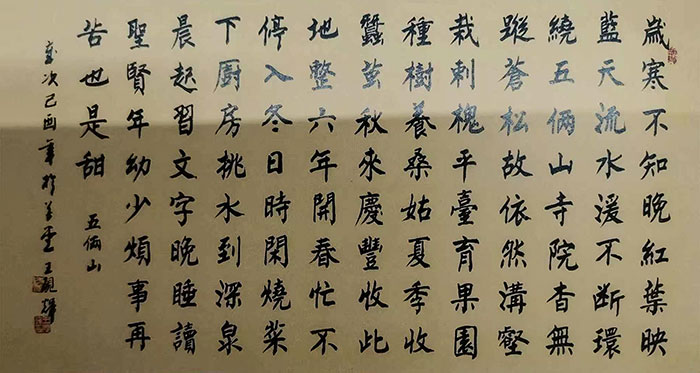 歲寒不知晚紅葉映
藍天流水湲不断環
繞五倆山寺院杳無
蹤蒼松故依然溝壑
栽刺槐平臺育果園
種樹養桑姑夏季收
蠶茧秋來慶豐收此
地整六年開春忙不
停入冬日時閑燒菜
下厨房挑水到深泉
晨起習文字晚睡讀
聖賢年幼少煩事再
苦也是甜 五倆山
歲次己酉